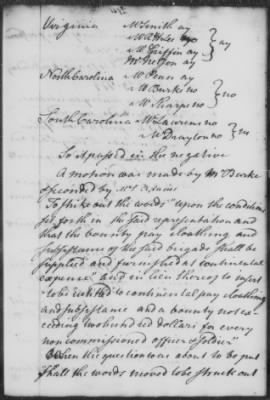 Virginia Mr Smith ay
Mr Griffin ay } ay
North Carolina Mr Penn ay
Mr Burke no } no
Mr Sharpe no
South Carolina Mr Laurens no
Mr Drayton no } no
So it passed in the negative
A motion was made by Mr Burke
seconded by Mr S Adams
To strike out the words "upon the conditions
set forth in the said representation and
that the bounty pay cloathing and
subsistance of the said brigade shall be
supplied and furnished at continental
expence" and in lieu thereof to insert
"to be entitled to continental pay cloathing
and subsistance and a bounty not ex-
ceeding two hundred dollars for every
non commissioned officer & soldier"
When the question was about to be put
shall the words moved to be struck out